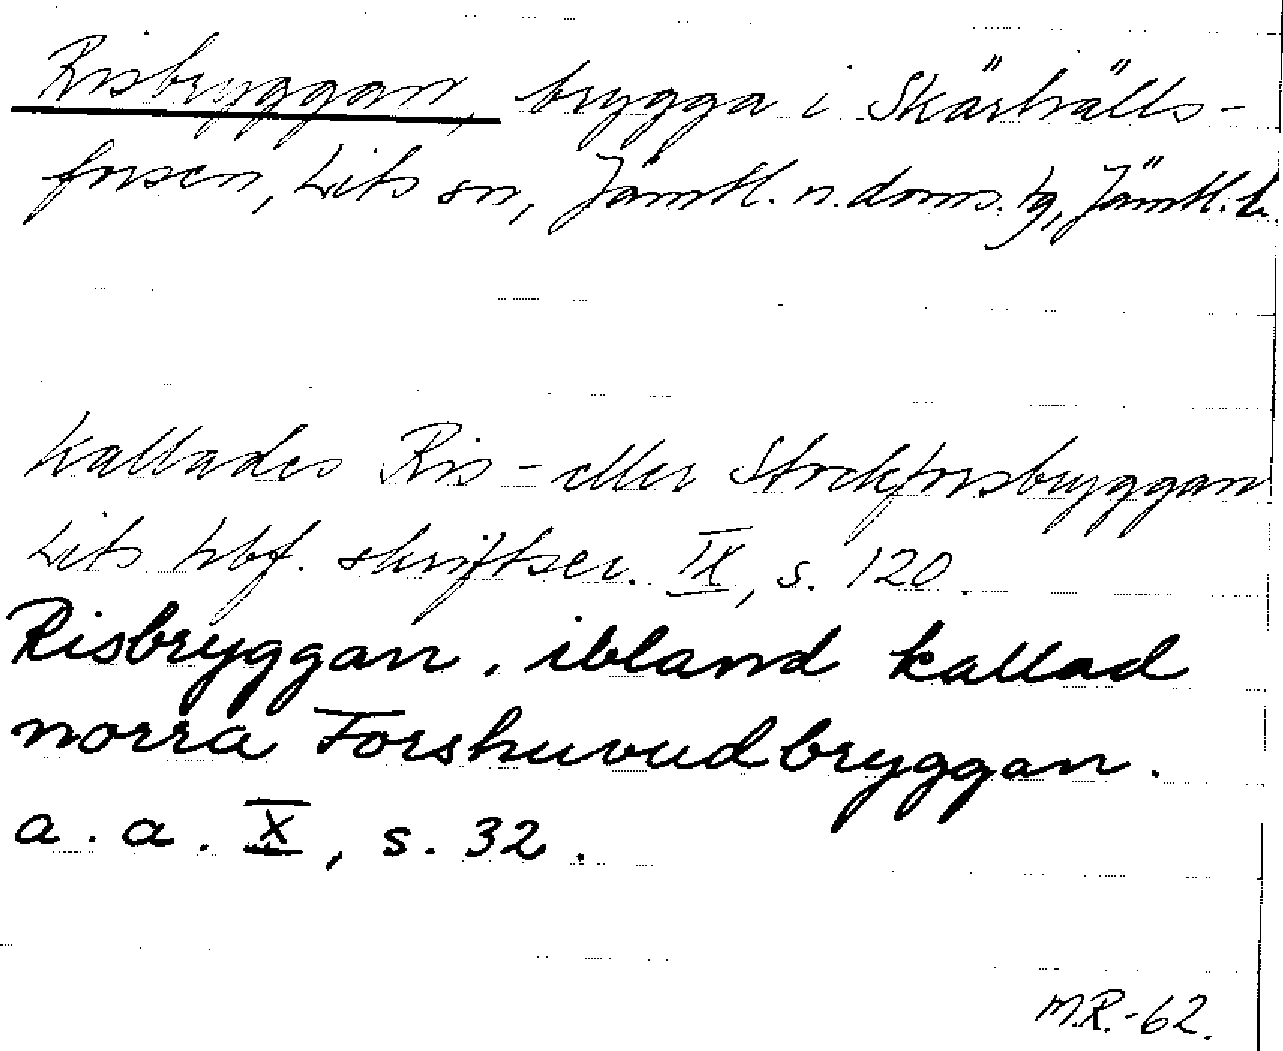 Risbryggan, brygga i Skärhälls-
forsen, Lits sn, Jämtl. n. doms. tg, Jämtl. l.
Kallades Ris- eller Stockforsbryggan
Lits hbf. skriftser. IX, s. 120.
Risbryggan, ibland kallad
norra Forshuvudbryggan.
a. a. X, s. 32.
M.R.-62.